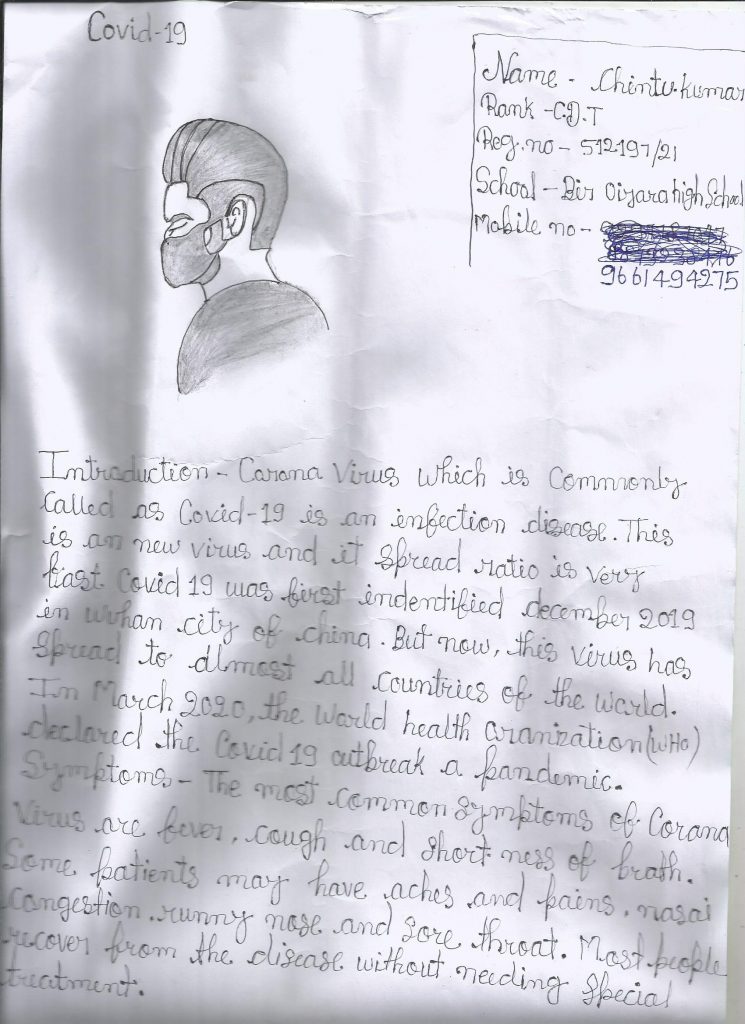 Covid-19
Name - Chintu.kumar
Rank - C.D.T
Reg.no - 512197/21
School - Bir Oiyara high School
Mobile no -
9661494275
Introduction - Carona Virus which is Commonly
Called as Covid-19 is an infection disease. This
is an new virus and it spread ratio is very
fast Covid 19 was first indentified december 2019
in wuhan city of china. But now, this virus has
spread to almost all countries of the world.
In March 2020, the World health Oranization (WHO)
declared the Covid 19 outbreak a pandemic.
Symptoms - The most common symptoms of Corona
Virus are fever, cough and short ness of brath.
Some patients may have aches and pains, nasai
congestion, runny nose and sore throat. Most people
recover from the disease without needing special
treatment.